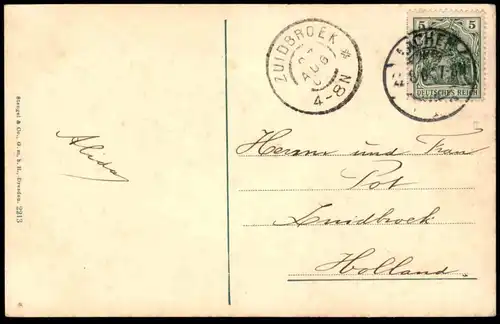 ZUIDBROEK *
AUG
4-8N
AACHEN
5 5
DEUTSCHES REICH
Alida
Herrn und Frau
Pot
Zuidbroek
Holland.
Stengel & Co., G. m. b. H., Dresden. 2213